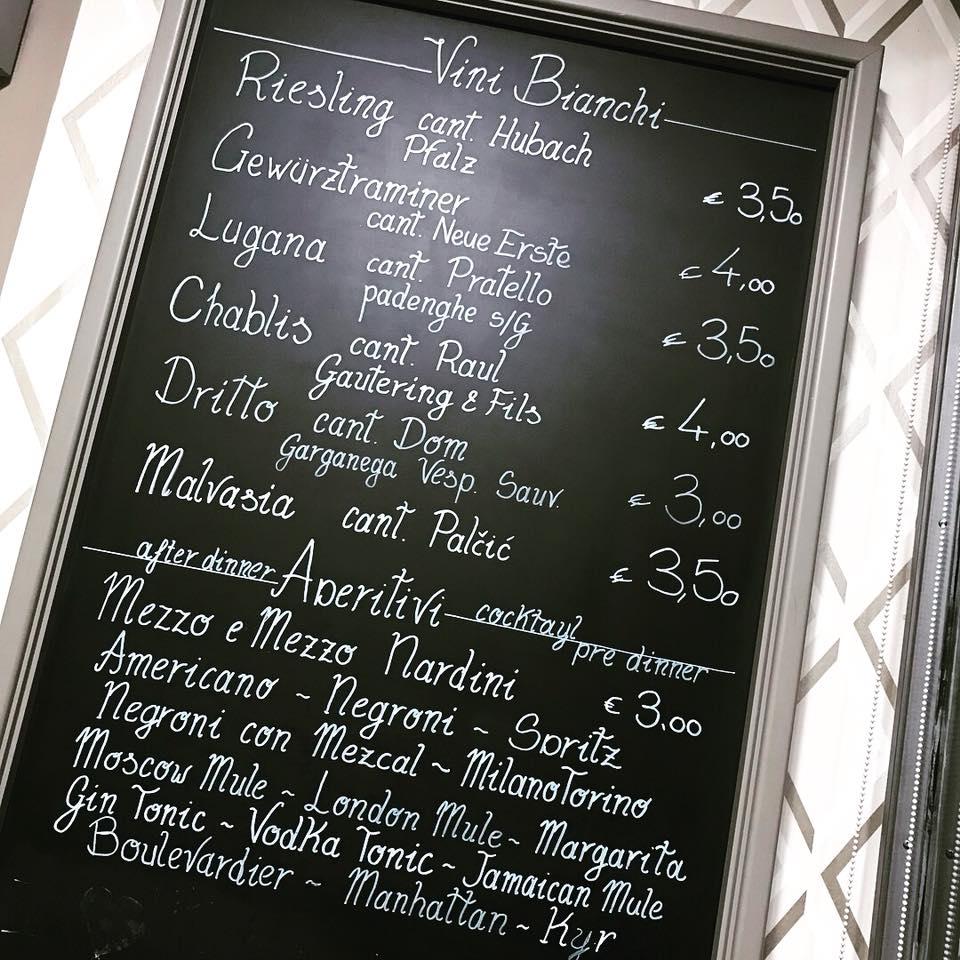 Vini Bianchi
Riesling cant. Hubach
Pfalz € 3,50
Gewürztraminer
cant. Neue Erste € 4,00
Lugana cant. Pratello
padenghe s/G € 3,50
Chablis cant. Raul
Gautering & Fils € 4,00
Dritto cant. Dom
Garganega Vesp. Sauv. € 3,00
Malvasia cant. Palčić € 3,50
after dinner Aperitivi cocktayl pre dinner
Mezzo e Mezzo Nardini € 3.00
Americano ~ Negroni ~ Spritz
Negroni con Mezcal ~ MilanoTorino
Moscow Mule ~ London Mule ~ Margarita
Gin Tonic ~ Vodka Tonic ~ Jamaican Mule
Boulevardier ~ Manhattan ~ Kyr